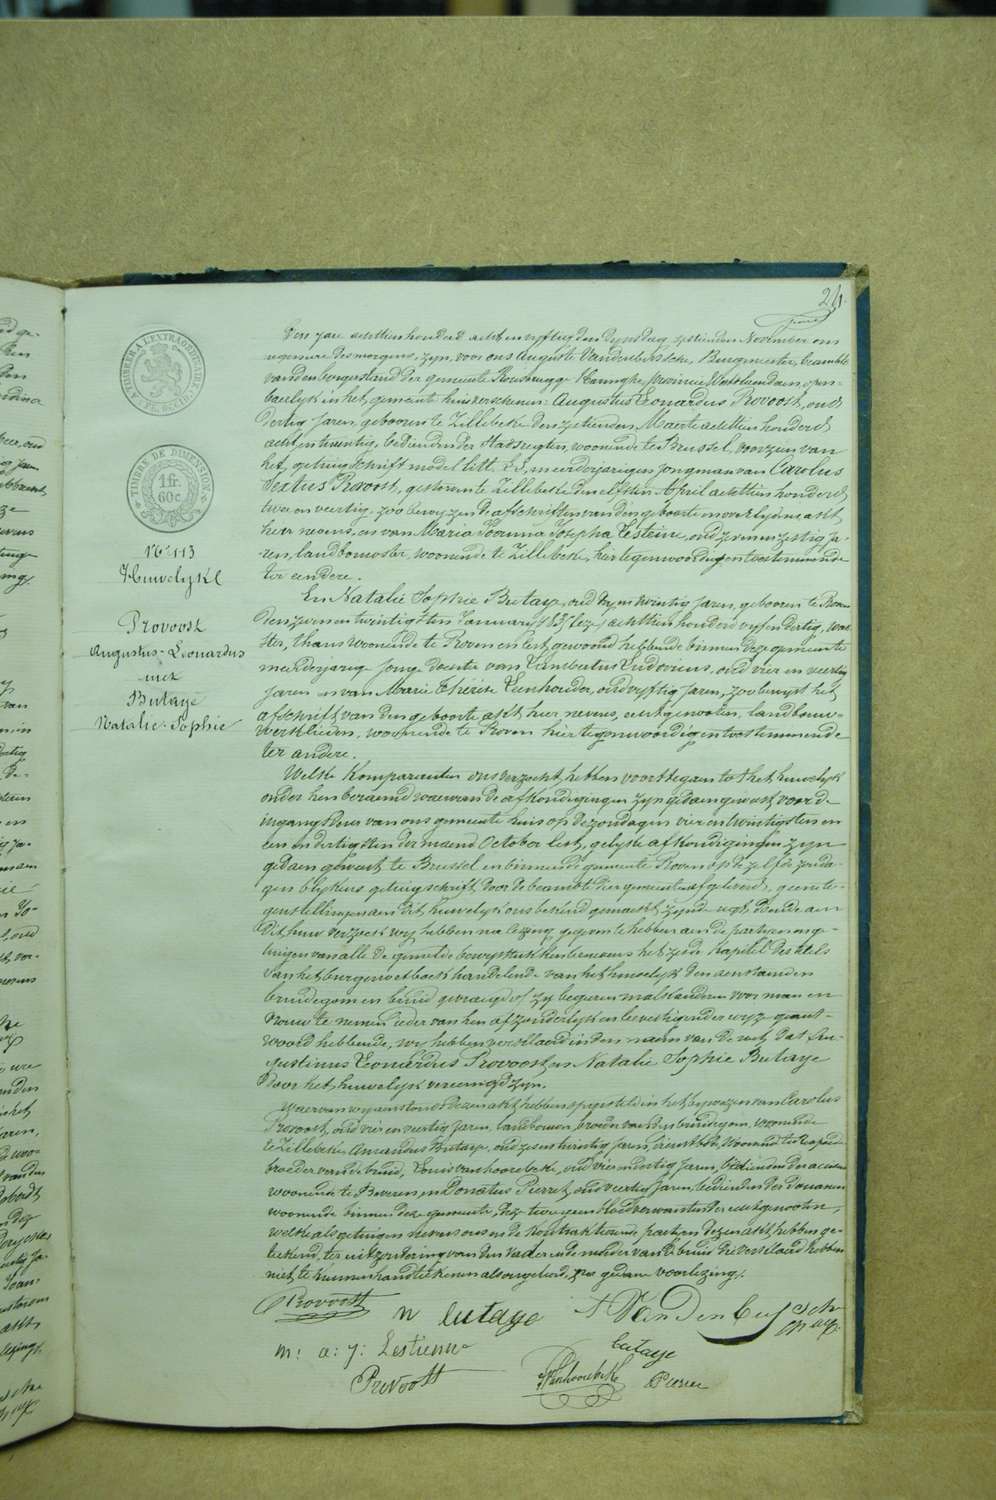 24.
A TIMBRER A L'EXTRAORDINAIRE
TIMBRE DE DIMENSION
1 fr.
60 c.
N° 113
Huwelijk
Provoost
Augustus-Leonardus
met
Butaye
Natalie-Sophie
den jare achttien honderd acht en vyftig den Dynsdag zestienden November om
negen ure des morgens, zyn, voor ons Auguste Vandenbussche, Burgmeester, beambte
van den burgerstand der gemeente Rousbrugge Haringhe, provincie Westvlaenderen, open-
baerlyk in het gemeente huis verschenen: Augustus Leonardus Provoost, oud
dertig jaren, geboren te Zillebeke den Maerte achttien honderd
acht en twintig, bediende woonende te Brussel, voorzien van
het getuigschrift model litt. meerderjarigen jongman van Carolus
Sextus Provoost, gestorven te Zillebeke den elfsten April achttien honderd
twee en veertig, zoo bewyzen de afschriften van den geboorte en overlydens akt
hier nevens, en van Maria Joanna Josepha Lestienne, oud zeven en zestig ja-
ren, landbouwster, woonende te Zillebeke, hier tegenwoordig en toestemmende
ter eendere.
En Natalie Sophie Butaye, oud dry en twintig jaren, geboren te Roven
den zeven en twintigsten January achttien honderd vyf en dertig,
thans woonende te Roven en lest gewoond hebbende binnen deze gemeente
meerderjarige jonge dochter van Lambertus Ludovicus, oud vier en veertig
jaren en van Marie Thérèse Eenhouder, oud vyftig jaren, zoo bewyst het
afschrift van den geboorte akt hier nevens, echtgenooten, landbouw-
werklieden, woonende te Roven hier tegenwoordig en toestemmende
ter andere.
Welke komparanten ons verzocht hebben voort te gaen tot het huwelyk
onder hen beraemd waervan de afkondigingen zyn gedaen geweest voor d'
ingang deur van ons gemeente huis op de zondagen vier en twintigsten en
een en dertigsten der maend October lest, gelyke afkondigingen zyn
gedaen geweest te Brussel en binnen de gemeente Roven op de zelfde zonda-
gen blykens getuigschrift door de beambte dier gemeenten afgeleverd, geene te-
genstellingen aen dit huwelyk ons bekend gemaekt zynde regt doende aen
dit hun verzoek wy hebben na lezing gegeven te hebben aen de partyen en ge-
tuigen van alle de gemelde bewysstukken benevens het zesde kapittel des titels
van het burger wetboek handelende van het huwelyk den aenstaenden
bruidegom en bruid gevraegd of zy begeren malkanderen voor man en
vrouw te nemen ieder van hen afzonderlyk en bevestigender wyze geant-
woord hebbende, wy hebben verklaerd in den naem van de wet, dat Au-
gustinus Leonardus Provoost en Natalie Sophie Butaye
door het huwelyk vereenigd zyn.
Waervan wy aenstonds dezen akt hebben opgesteld in het bywezen van Carolus
Provoost, oud vier en veertig jaren, landbouwer, broeder van den bruidegom, woonende
te Zillebeke, Amandus Butaye, oud zes en twintig jaren, woonende te
broeder van de bruid, Louis vanhoorebeke, oud vier en dertig jaren, bediende der accisen
woonende te Beveren, en Donatus Pierret, oud veertig jaren, bediende der douanen
woonende binnen deze gemeente, deze twee geen bloedverwanten der echtgenooten,
welke als getuigen nevens ons en de kontrakterende partyen dezen akt hebben ge-
teekend, ter uitzondering van den vader ende moeder van de bruid die verklaerd hebben
niet te kunnen handteekenen als ongeleerd, na gedane voorlezing.
Provoost
n butaye
A VanDenbussche
m: a: j: Lestienne
butaye
Provoost
Vanhoorebeke
Pierret